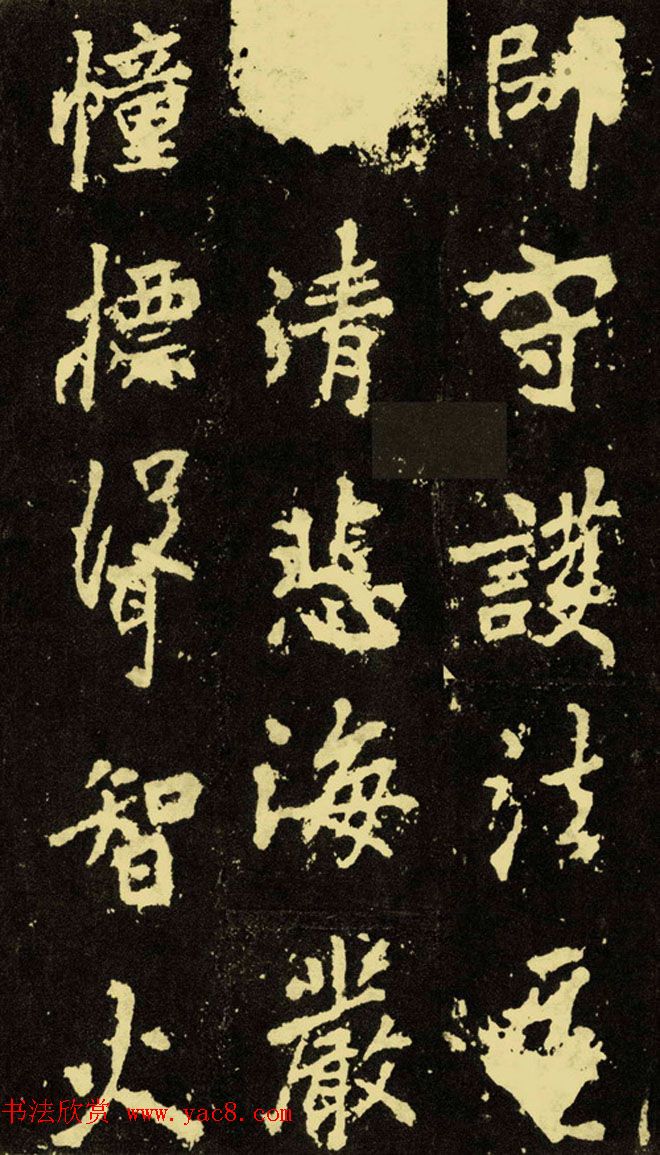 師守護法
清悲海嚴
幢標智火
书法欣赏 www.yac8.com